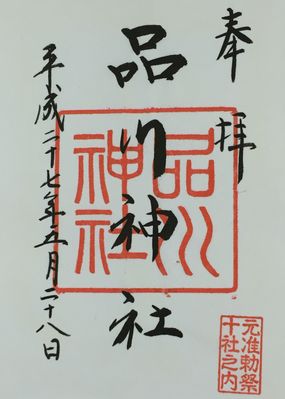 奉拝
品川神社
平成二十七年五月二十八日
品川
神社
元准勅祭
十社之内